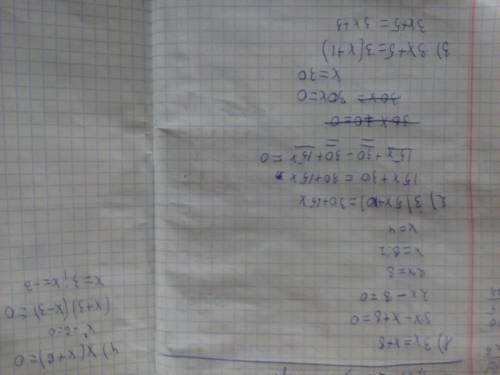 1) 3x = x+8
3x - x + 8 = 0
2x - 8 = 0
2x = 8
x = 8:2
x = 4
2) 3(5x+10) = 30+15x
15x + 30 = 30+15x
15x + 30 - 30 + 15x = 0
30x = 0
x = 30
3) 3x+5 = 3(x+1)
3x+5 = 3x+3
4)
(x+3)(x-3) = 0
x = 3; x = -3